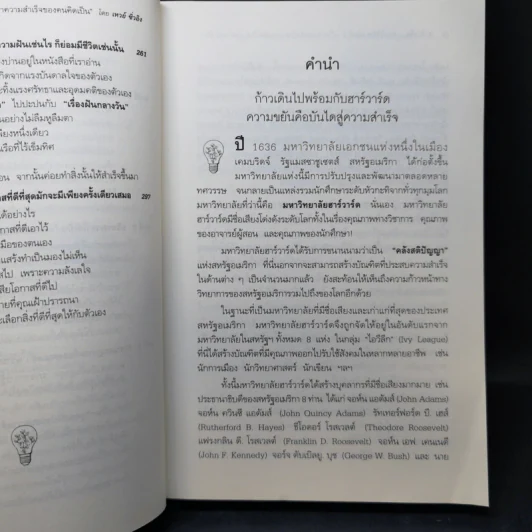 าความสำเร็จของคนคิดเป็น" โดย เหวย์ ซิ่วอิง
ความฝันเช่นไร ก็ย่อมมีชีวิตเช่นนั้น 261
งบ่านอยู่ในหนังสือที่เราอ่าน
กิดจากแรงบันดาลใจของตัวเอง
ะทิ้งแรงศรัทธาและอุดมคติของตัวเอง
" ไปปะปนกับ "เรื่องฝันกลางวัน"
นอย่างไม่ลืมหูลืมตา
พียงหนึ่งเดียว
รือที่ไร้เข็มทิศ
อน จากนั้นค่อยทำสิ่งนั้นให้สำเร็จขึ้นมา
สที่ดีที่สุดมักจะมีเพียงครั้งเดียวเสมอ 297
ได้อย่างไร
กาสที่ดีเอาไว้
มือของตนเอง
แสร้งทำเป็นมองไม่เห็น
สไป เพราะความลังเลใจ
สียโอกาสที่ดีไป
ายที่คุณเฝ้าปรารถนา
ะเลือกสิ่งที่ดีที่สุดให้กับตัวเอง
คำนำ
ก้าวเดินไปพร้อมกับฮาร์วาร์ด
ความขยันคือบันไดสู่ความสำเร็จ
ปี 1636 มหาวิทยาลัยเอกชนแห่งหนึ่งในเมือง
เคมบริดจ์ รัฐแมสซาชูเซตส์ สหรัฐอเมริกา ได้ก่อตั้งขึ้น
มหาวิทยาลัยแห่งนี้มีการปรับปรุงและพัฒนามาตลอดหลาย
ทศวรรษ จนกลายเป็นแหล่งรวมนักศึกษาระดับหัวกะทิจากทั่วทุกมุมโลก
มหาวิทยาลัยที่ว่านี้คือ มหาวิทยาลัยฮาร์วาร์ด นั่นเอง มหาวิทยาลัย
ฮาร์วาร์ดมีชื่อเสียงโด่งดังระดับโลกทั้งในเรื่องคุณภาพทางวิชาการ คุณภาพ
ของอาจารย์ผู้สอน และคุณภาพของนักศึกษา!
มหาวิทยาลัยฮาร์วาร์ดได้รับการขนานนามว่าเป็น "คลังสติปัญญา"
แห่งสหรัฐอเมริกา ที่นี่นอกจากจะสามารถสร้างบัณฑิตที่ประสบความสำเร็จ
ในด้านต่าง ๆ เป็นจำนวนมากแล้ว ยังสะท้อนให้เห็นถึงความก้าวหน้าทาง
วิทยาการของสหรัฐอเมริการวมไปถึงของโลกอีกด้วย
ในฐานะที่เป็นมหาวิทยาลัยที่มีชื่อเสียงและเก่าแก่ที่สุดของประเทศ
สหรัฐอเมริกา มหาวิทยาลัยฮาร์วาร์ดจึงถูกจัดให้อยู่ในอันดับแรกจาก
มหาวิทยาลัยในสหรัฐฯ ทั้งหมด 8 แห่ง ในกลุ่ม "ไอวีลีก" (Ivy League)
ที่นี่ได้สร้างบัณฑิตที่มีคุณภาพออกไปรับใช้สังคมในหลากหลายอาชีพ เช่น
นักการเมือง นักวิทยาศาสตร์ นักเขียน ฯลฯ
ทั้งนี้มหาวิทยาลัยฮาร์วาร์ดได้สร้างบุคลากรที่มีชื่อเสียงมากมาย เช่น
ประธานาธิบดีของสหรัฐอเมริกา 8 ท่าน ได้แก่ จอห์น แอดัมส์ (John Adams)
จอห์น ควินซี แอดัมส์ (John Quincy Adams) รัทเทอร์ฟอร์ด บี. เฮส์
(Rutherford B. Hayes) ธีโอดอร์ โรสเวลต์ (Theodore Roosevelt)
แฟรงกลิน ดี. โรสเวลต์ (Franklin D. Roosevelt) จอห์น เอฟ. เคนเนดี
(John F. Kennedy) จอร์จ ดับเบิลยู. บุช (George W. Bush) และ นาย